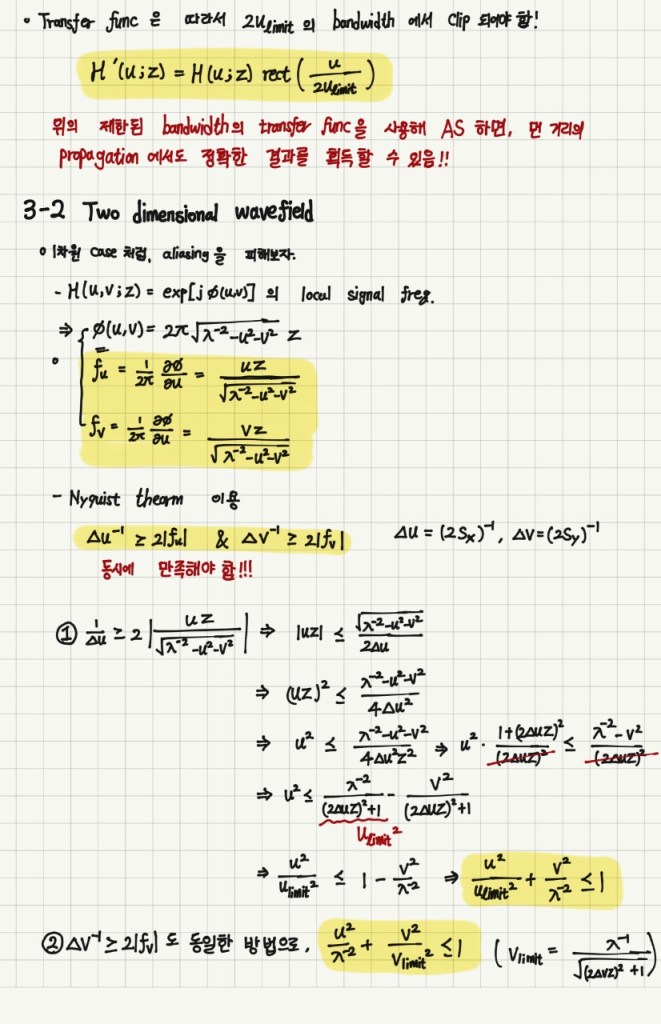 ∘ Transfer func 은 따라서 2u_limit 의 bandwidth 에서 clip 되어야 함!
H'(u;z) = H(u;z) rect(u/2u_limit)
위의 제한된 bandwidth의 transfer func을 사용해 AS 하면, 먼 거리의
propagation 에서도 정확한 결과를 획득할 수 있음!!
3-2 Two dimensional wavefield
∘ 1차원 case 처럼, aliasing을 피해보자.
- H(u,v;z) = exp[j φ(u,v)] 의 local signal freq.
⇒ { φ(u,v) = 2π√(λ⁻²-u²-v²) z
∘ f_u = 1/2π ∂φ/∂u = uz/√(λ⁻²-u²-v²)
f_v = 1/2π ∂φ/∂u = vz/√(λ⁻²-u²-v²)
- Nyquist thearm 이용
Δu⁻¹ ≥ 2|f_u| & Δv⁻¹ ≥ 2|f_v| Δu = (2S_x)⁻¹, Δv = (2S_y)⁻¹
동시에 만족해야 함!!!
① 1/Δu ≥ 2|uz/√(λ⁻²-u²-v²)| ⇒ |uz| ≤ √(λ⁻²-u²-v²)/2Δu
⇒ (uz)² ≤ (λ⁻²-u²-v²)/4Δu²
⇒ u² ≤ (λ⁻²-u²-v²)/4Δu²z² ⇒ u² · (1+(2Δuz)²)/(2Δuz)² ≤ (λ⁻²-v²)/(2Δuz)²
⇒ u² ≤ λ⁻²/((2Δuz)²+1) - v²/((2Δuz)²+1)
u_limit²
⇒ u²/u_limit² ≤ 1 - v²/λ⁻² ⇒ u²/u_limit² + v²/λ⁻² ≤ 1
② Δv⁻¹ ≥ 2|f_v| 도 동일한 방법으로, u²/λ⁻² + v²/v_limit² ≤ 1 (v_limit = λ⁻¹/√((2Δvz)²+1))